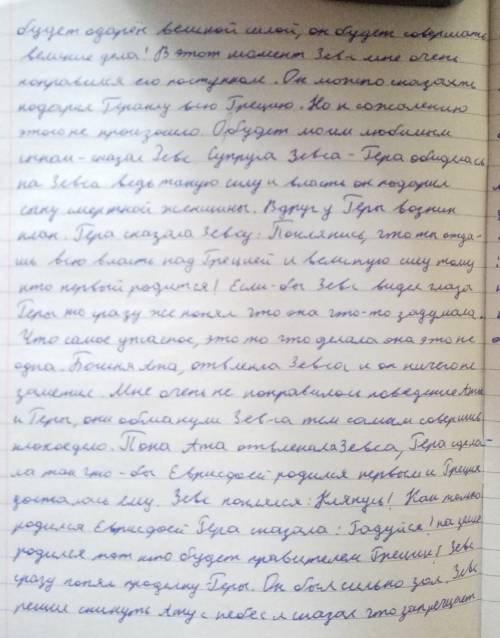 будет одарён великой силой, он будет совершать
великие дела! В этот момент Зевс мне очень
понравился его поступком. Он можно сказахть
подарил Гераклу всю Грецию. Но к сожалению
этого не произошло. О, будет моим любимым
сыном - сказал Зевс. Супруга Зевса - Гера обиделась
на Зевса ведь такую силу и власть он подарил
сыну смертной женщины. Вдруг у Геры возник
план. Гера сказала Зевсу: Поклянись, что ты отда-
шь всю власть над Грецией и великую силу тому
кто первый родится! Если-бы Зевс видел глаза
Геры то сразу же понял что она что-то задумала.
Что самое ужасное, это то что делала она это не
одна. Богиня Ата, отвлекла Зевса и он ничего не
заметил. Мне очень не понравилось поведение Аты
и Геры, они обманули Зевса тем самым совершив
плохое дело. Пока Ата отвлекала Зевса, Гера сдела-
ла так что-бы Еврисфей родился первым и Греция
досталась ему. Зевс поклялся: Клянусь! Как только
родился Еврисфей Гера сказала: Радуйся! на земле
родился тот кто будет правителем Греции! Зевс
сразу понял проделку Геры. Он был сильно зол. Зевс
решил скинуть Ату с небес и сказал что запрещает